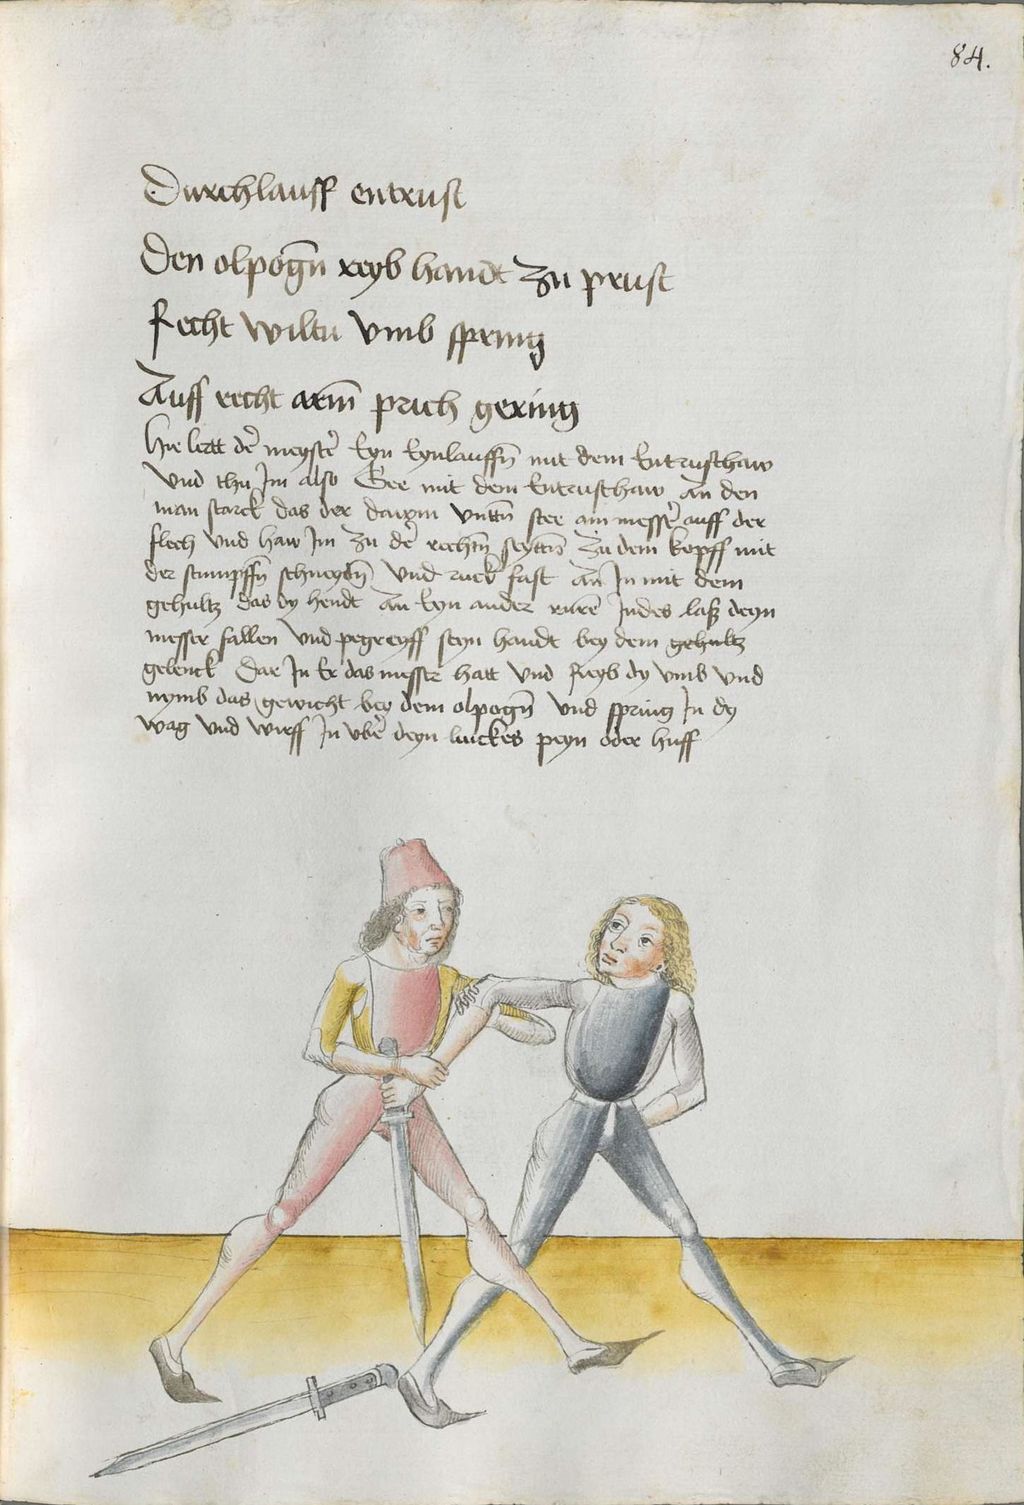 84.
Durchlauff entrust
Den olpogn̄ reyb handt zu prust
Fecht wiltu vmb spring
Auff recht arm̄ prich gering
Hie lertt der̄ meyster̄ Eyn Eynlauffn̄ mit dem Entrusthaw
Vnd thu Jm also Gee mit dem Entrusthaw An den
man starck das der dawm vnttn̄ stee am messer̄ auff der
flech vnd haw Jm zu der̄ rechtn̄ seyttn̄ zu dem kopff mit
der stumpffn̄ schneydn̄ vnd ruck fast An Jn mit dem
gehultz das dy hendt An Eyn ander rurn̄ Jndes laß deyn
messer fallen vnd pegreyff seyn handt bey dem gehultz
gelenck Dar Jn Er das messer hatt vnd Reyb dy vmb vnd
nymb das gewicht bey dem olpogn̄ vnd spring Jn dy
wag vnd wirff Jn vber̄ deyn linckes peyn oder huff